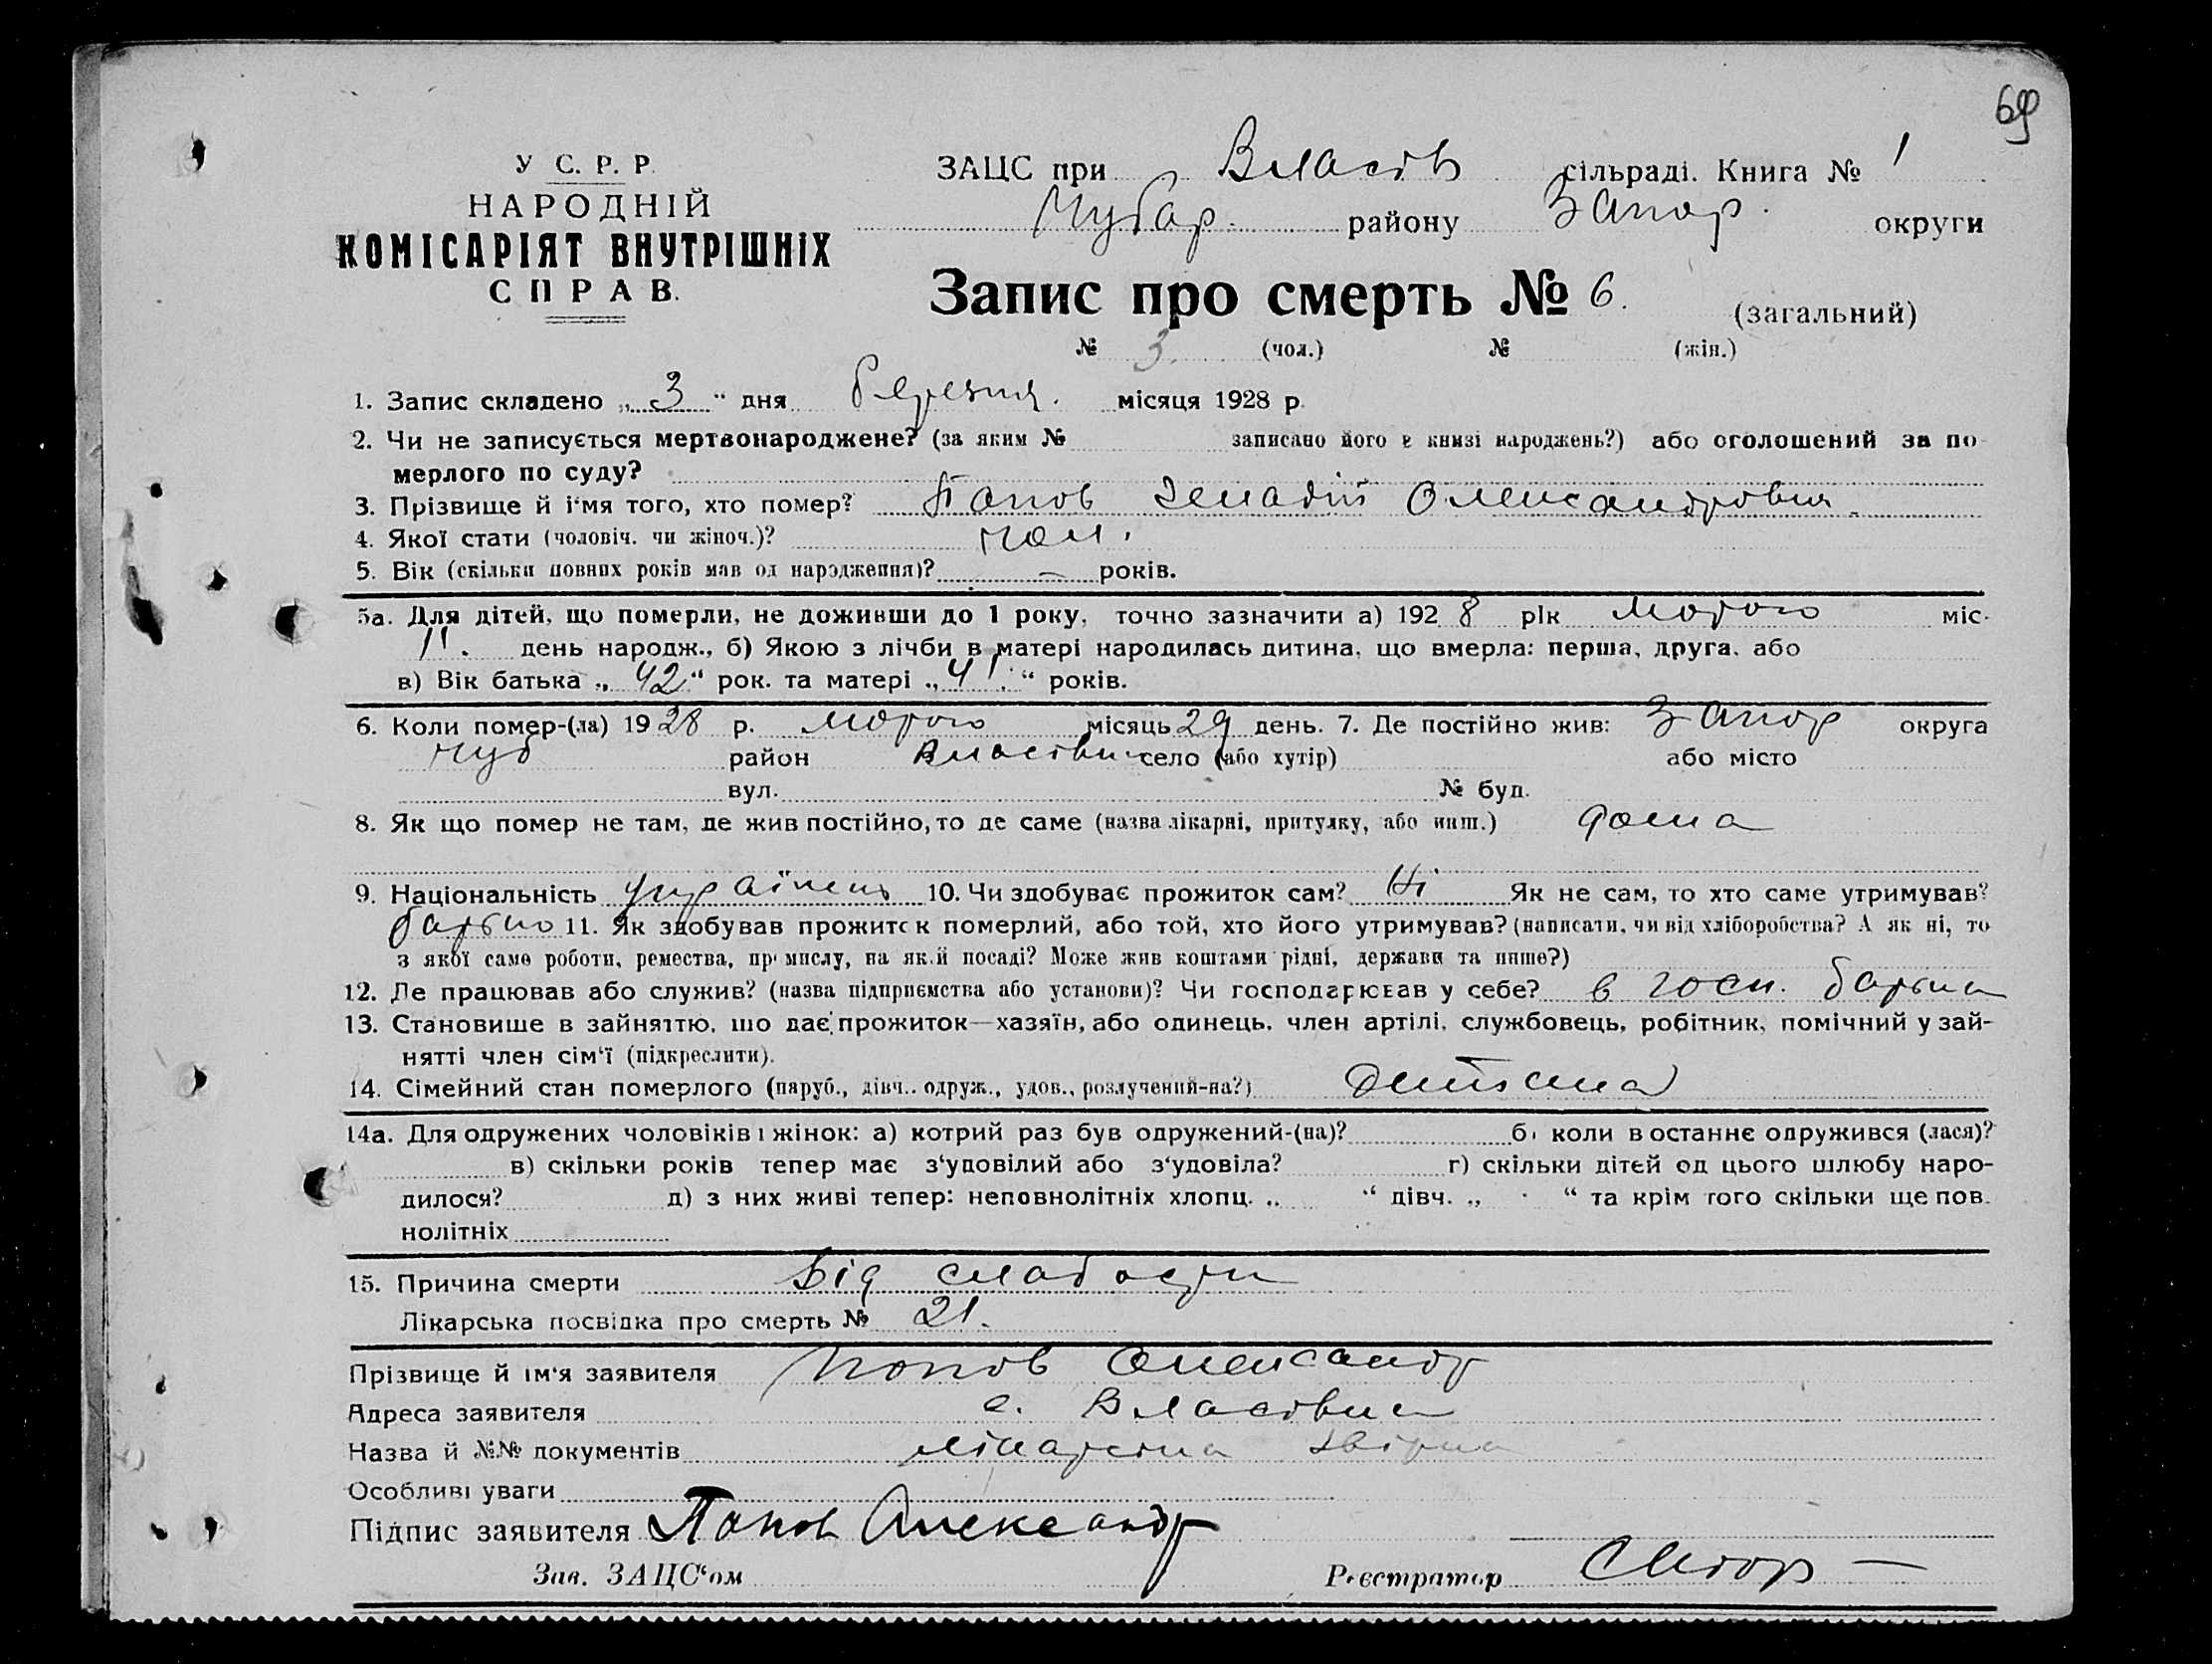 69
У С. Р. Р.
НАРОДНІЙ
КОМІСАРІЯТ ВНУТРІШНІХ
СПРАВ.
ЗАЦС при Власів сільраді. Книга № 1
Чубар. району Запор. округи
Запис про смерть № 6. (загальний)
№ 3. (чол.) № (жін.)
1. Запис складено „3“ дня березня. місяця 1928 р.
2. Чи не записується мертвонароджене? (за яким № записано його в книзі народжень?) або оголошений за по-
мерлого по суду?
3. Прізвище й і'мя того, хто помер? Попов Генадій Олександрович.
4. Якої стати (чоловіч. чи жіноч.)? чол.
5. Вік (скільки повних років мав од народження)? — років.
5а. Для дітей, що померли, не доживши до 1 року, точно зазначити а) 1928 рік лютого міс.
11. день народж., б) Якою з лічби в матері народилась дитина, що вмерла: перша, друга, або
в) Вік батька „42“ рок. та матері „41.“ років.
6. Коли помер-(ла) 1928 р. лютого місяць 29 день. 7. Де постійно жив: Запор округа
Чуб район Власівка село (або хутір) або місто
вул. № буд.
8. Як що помер не там, де жив постійно, то де саме (назва лікарні, притулку, або инш.) дома
9. Національність українець 10. Чи здобуває прожиток сам? Ні Як не сам, то хто саме утримував?
батько 11. Як здобував прожиток померлий, або той, хто його утримував? (написати, чи від хліборобства? А як ні, то
з якої саме роботи, ремества, промислу, на якій посаді? Може жив коштами рідні, держави та инше?)
12. Де працював або служив? (назва підприємства або установи)? Чи господарював у себе? в госп. батька
13. Становище в зайняттю, що дає прожиток—хазяїн, або одинець, член артілі, службовець, робітник, помічний у зай-
нятті член сім'ї (підкреслити).
14. Сімейний стан померлого (паруб., дівч., одруж., удов., розлучений-на?) дитина
14а. Для одружених чоловіків і жінок: а) котрий раз був одружений-(на)? б) коли в останнє одружився (лася)?
в) скільки років тепер має з'удовілий або з'удовіла? г) скільки дітей од цього шлюбу наро-
дилося? д) з них живі тепер: неповнолітніх хлопц. „ “ дівч. „ “ та крім того скільки ще пов.
нолітніх
15. Причина смерти Від слабости
Лікарська посвідка про смерть № 21.
Прізвище й ім'я заявителя Попов Олександр
Адреса заявителя с. Власівка
Назва й №№ документів лікарська
Особливі уваги
Підпис заявителя Попов Александр
Зав. ЗАЦС'ом Реєстратор